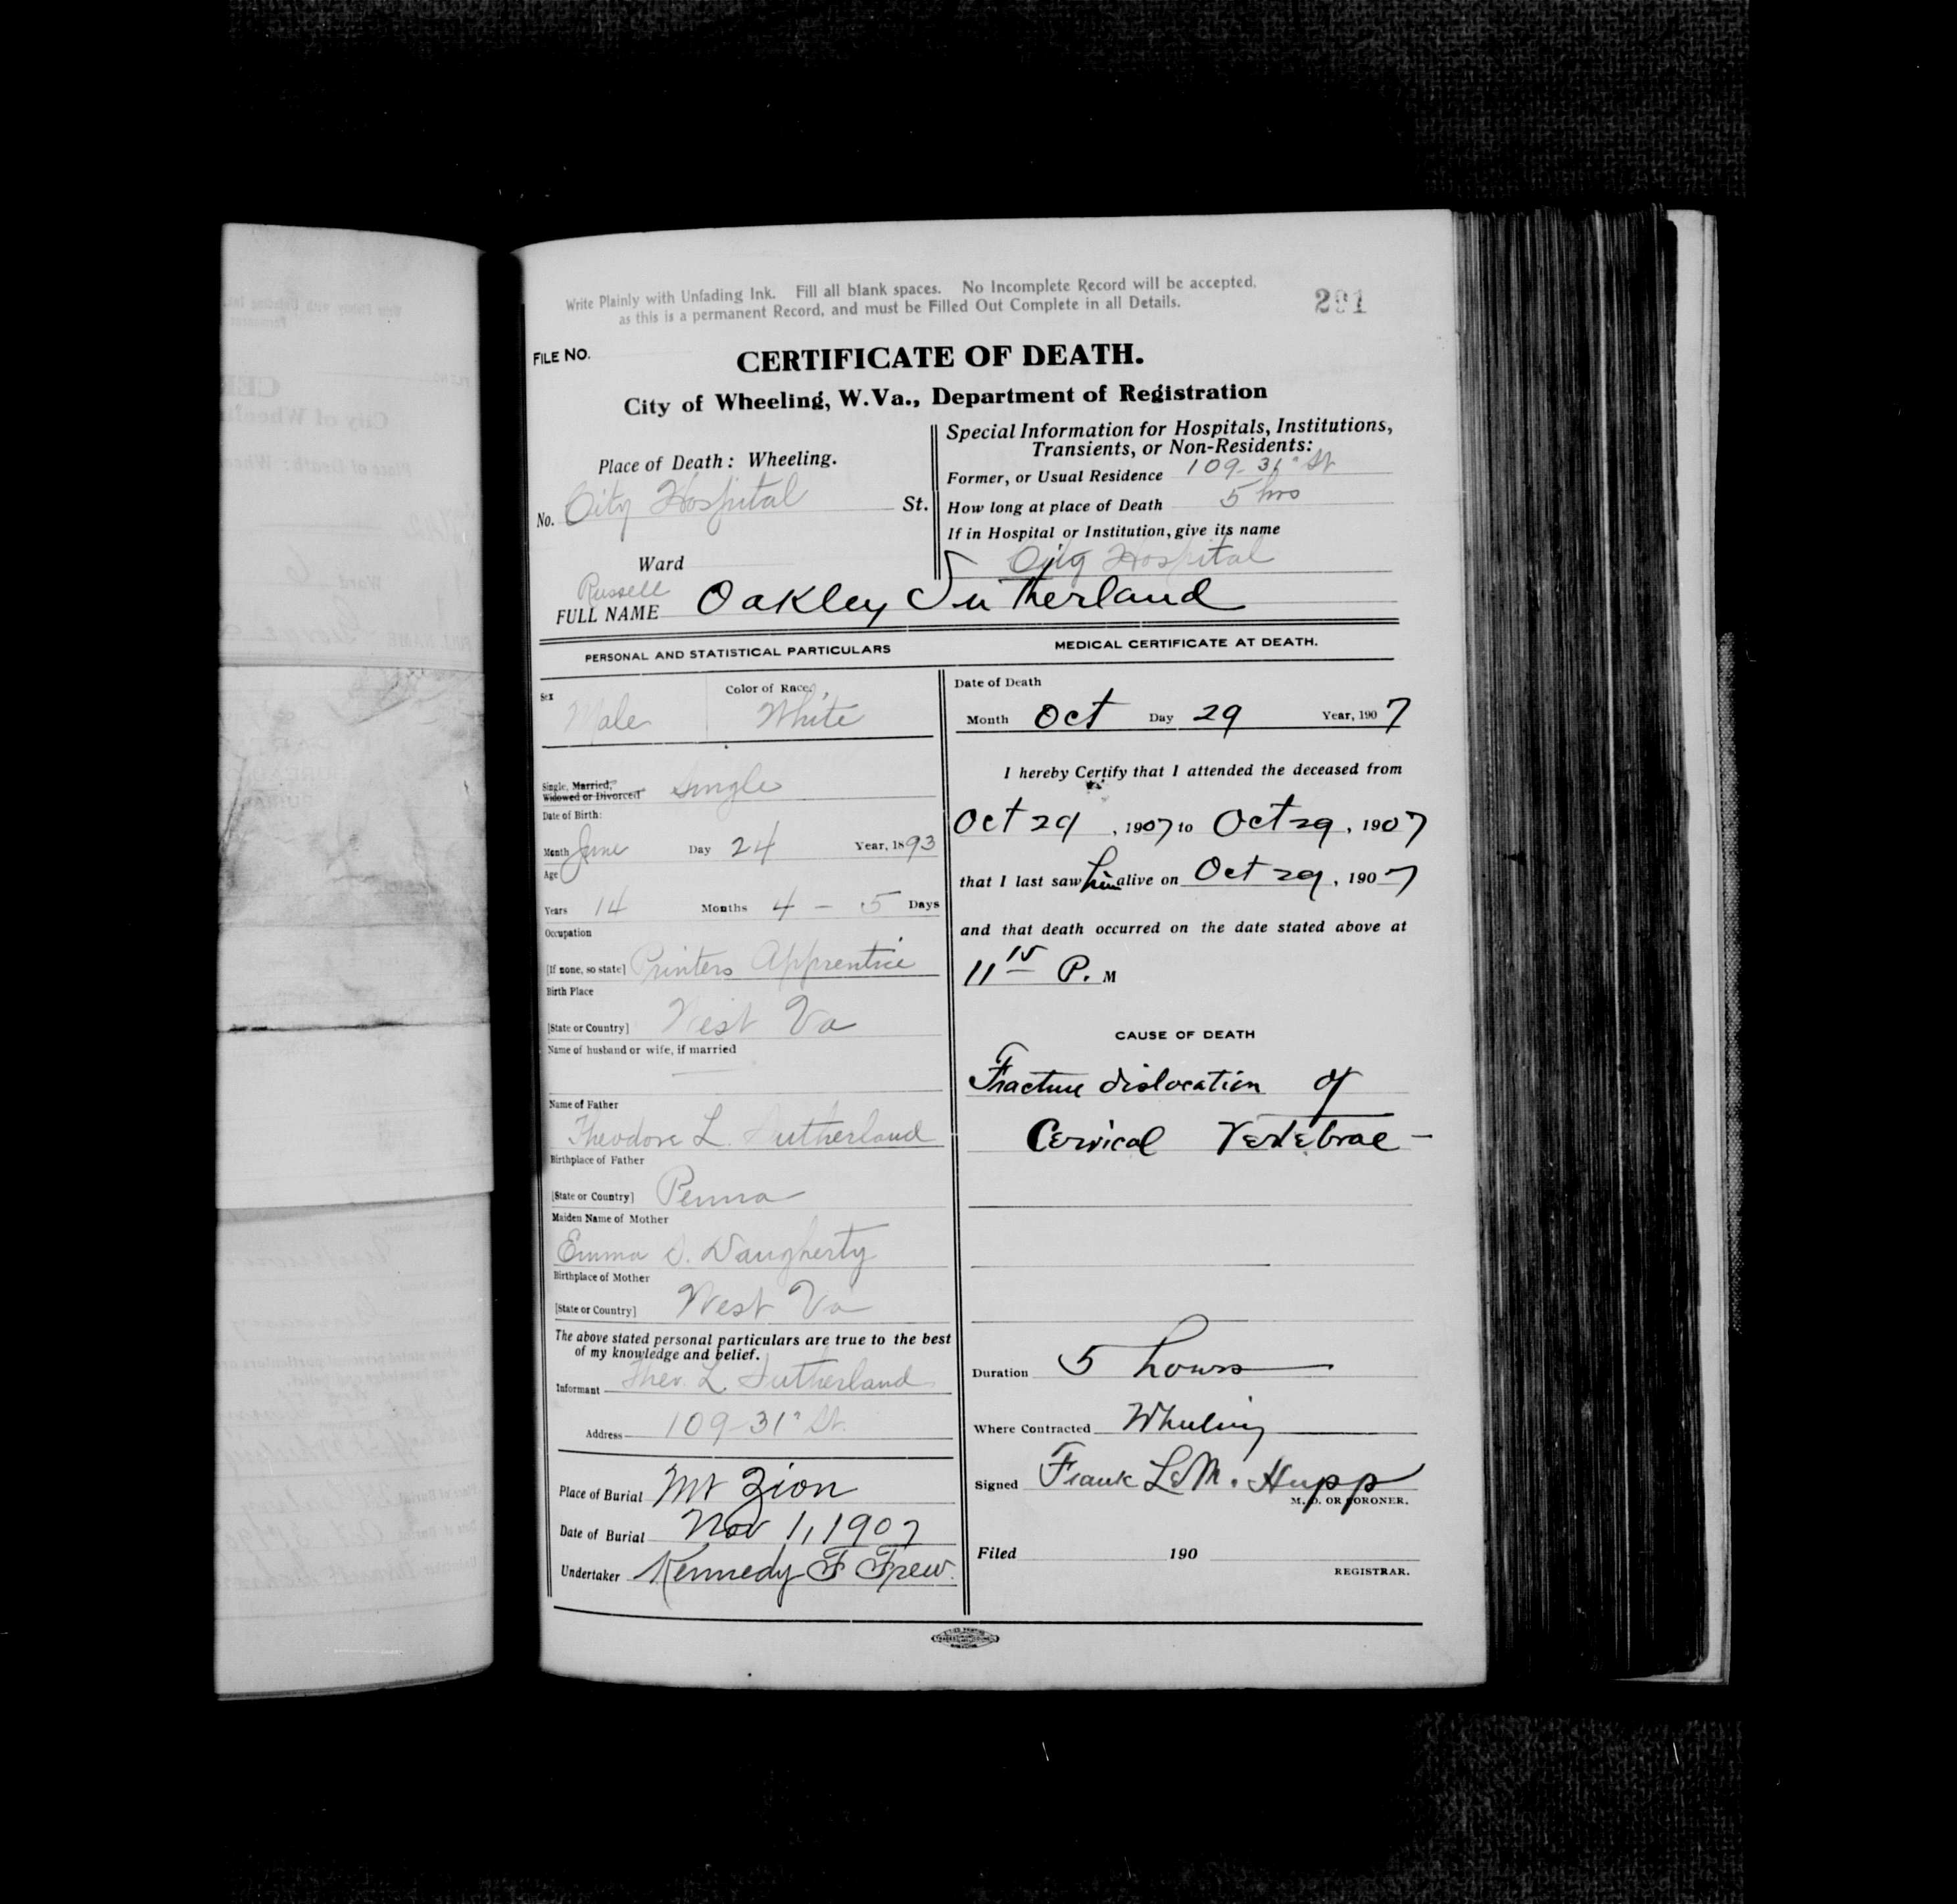 Write Plainly with Unfading Ink. Fill all blank spaces. No Incomplete Record will be accepted,
as this is a permanent Record, and must be Filled Out Complete in all Details.
291
FILE NO.
CERTIFICATE OF DEATH.
City of Wheeling, W.Va., Department of Registration
Place of Death: Wheeling.
No. City Hospital St.
Ward
Special Information for Hospitals, Institutions,
Transients, or Non-Residents:
Former, or Usual Residence 109-31" St
How long at place of Death 5 hrs
If in Hospital or Institution, give its name
City Hospital
Russell
FULL NAME Oakley Sutherland
PERSONAL AND STATISTICAL PARTICULARS
Sex Color of Race
Male White
Single, Married, Widowed or Divorced Single
Date of Birth:
Month June Day 24 Year, 1893
Age
Years 14 Months 4 - 5 Days
Occupation
[If none, so state] Printers Apprentice
Birth Place
[State or Country] West Va
Name of husband or wife, if married
Name of Father
Theodore L. Sutherland
Birthplace of Father
[State or Country] Penna
Maiden Name of Mother
Emma S. Daugherty
Birthplace of Mother
[State or Country] West Va
The above stated personal particulars are true to the best
of my knowledge and belief.
Informant Theo. L. Sutherland
Address 109-31" St.
Place of Burial Mt Zion
Date of Burial Nov 1, 1907
Undertaker Kennedy F Frew.
MEDICAL CERTIFICATE AT DEATH.
Date of Death
Month Oct Day 29 Year, 1907
I hereby Certify that I attended the deceased from
Oct 29, 1907 to Oct 29, 1907
that I last saw him alive on Oct 29, 1907
and that death occurred on the date stated above at
11 15 P. M
CAUSE OF DEATH
Fracture dislocation of
Cervical Vertebrae -
Duration 5 hours
Where Contracted Wheeling
Signed Frank LeM. Hupp
M. D. OR CORONER.
Filed 190
REGISTRAR.